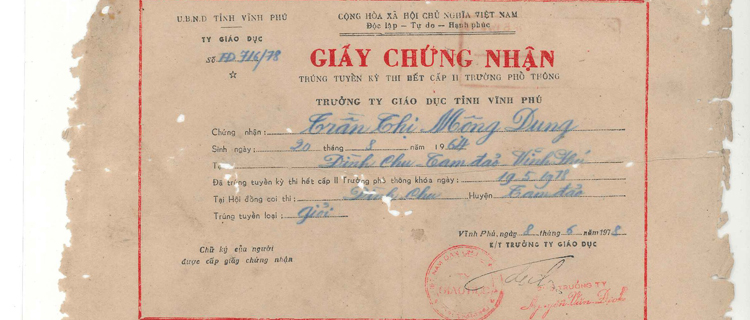 U.B.N.D TỈNH VĨNH PHÚ
TY GIÁO DỤC
Số TD 716/78
CỘNG HÒA XÃ HỘI CHỦ NGHĨA VIỆT NAM
Độc lập - Tự do - Hạnh phúc
GIẤY CHỨNG NHẬN
TRÚNG TUYỂN KỲ THI HẾT CẤP II TRƯỜNG PHỔ THÔNG
TRƯỞNG TY GIÁO DỤC TỈNH VĨNH PHÚ
Chứng nhận: Trần Thị Mộng Dung
Sinh ngày: 20 tháng 8 năm 1964
Tại Đình Chu Tam đảo Vĩnh Phú
Đã trúng tuyển kỳ thi hết cấp II Trường phổ thông khóa ngày: 19.5.1978
Tại Hội đồng coi thi: Đình Chu Huyện Tam đảo
Trúng tuyển loại: Giỏi
Vĩnh Phú, ngày 8 tháng 6 năm 1978
K/T TRƯỞNG TY GIÁO DỤC
Chữ ký của người
được cấp giấy chứng nhận
TRƯỞNG TY
Nguyễn Văn